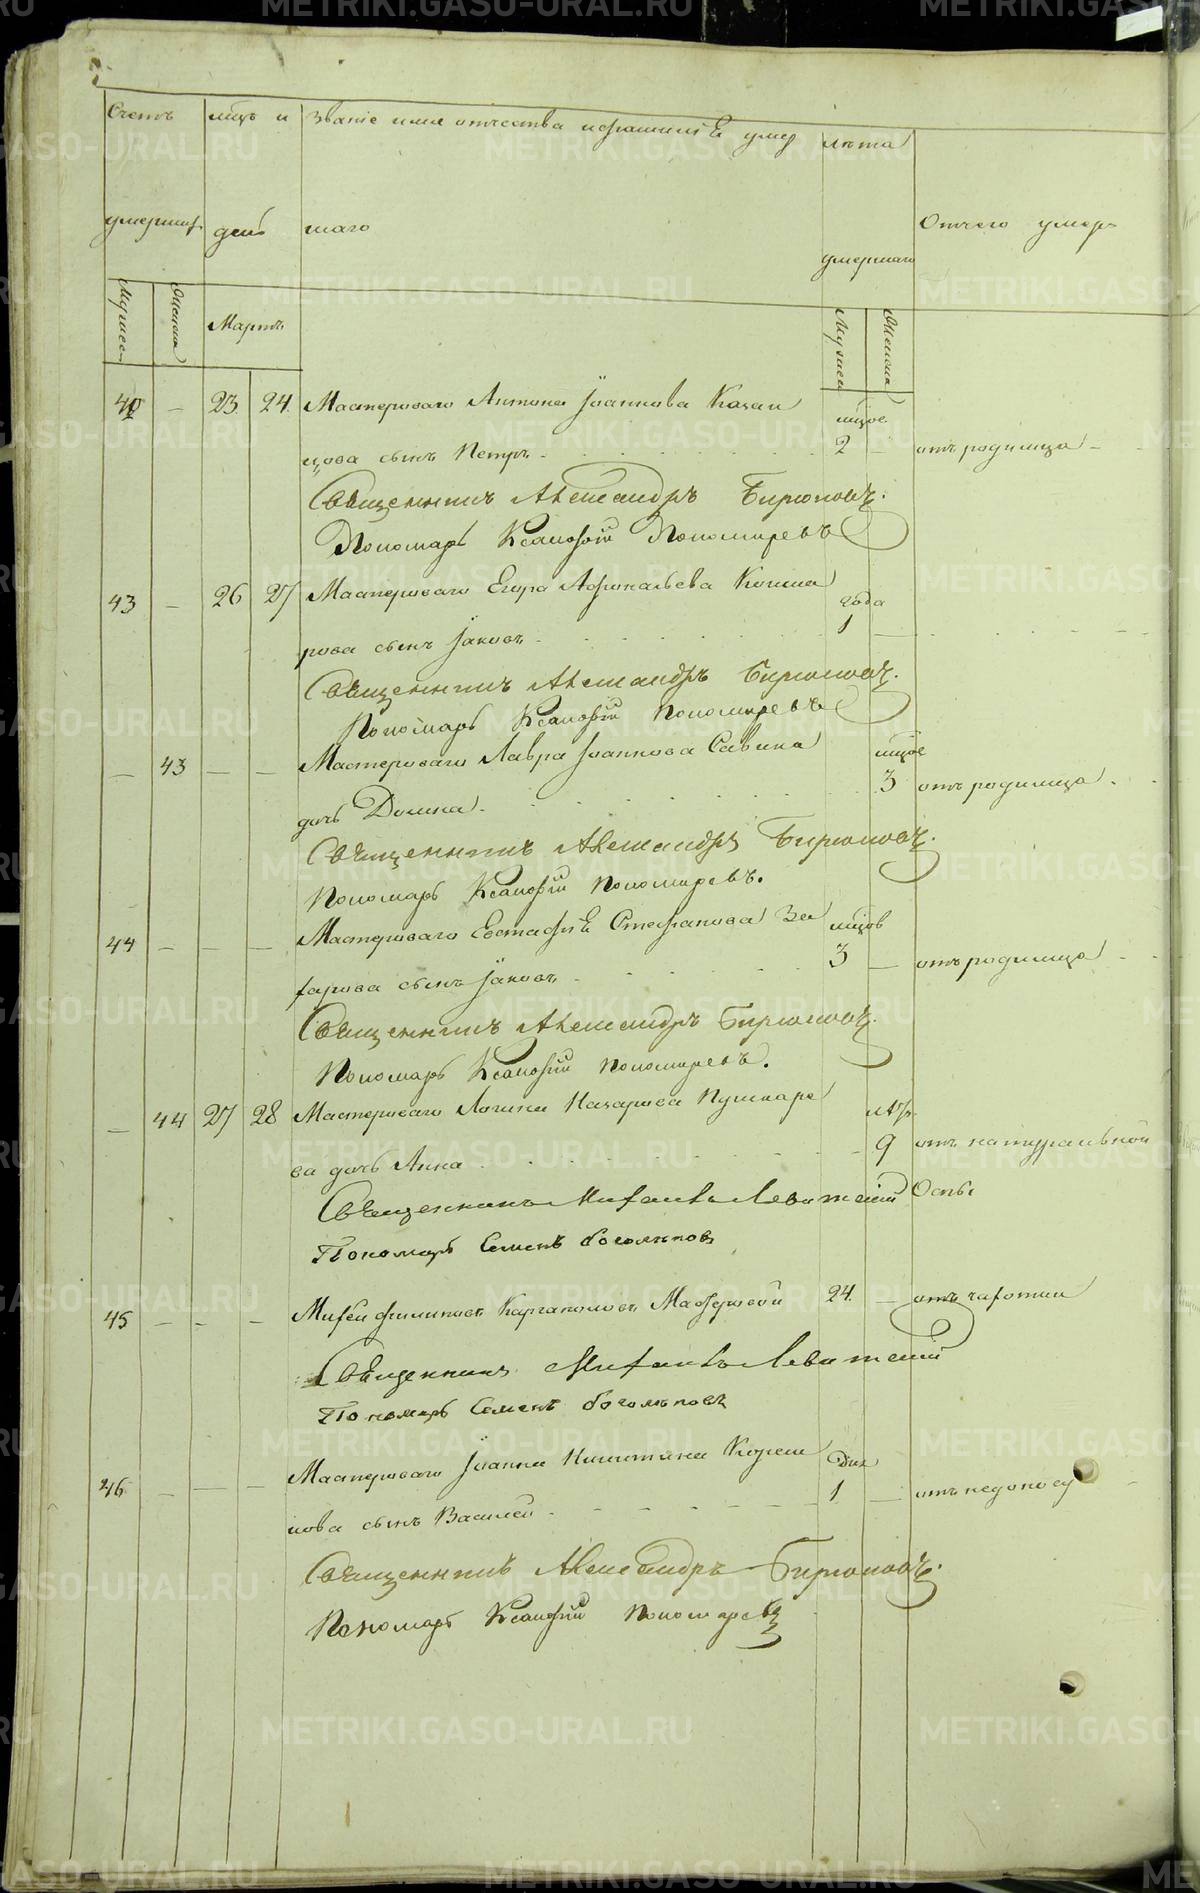 Счетъ мцъ и Званіе имя отчества и фамилія умер лѣта
умершихъ день шаго умершаго Отчего умеръ
Мужеск Женска Мартъ Мужеск Женска
42 — 23 24 Мастероваго Антона Іоаннова Казан мцов
цова сынъ Петръ 2 — отъ родимца
Священникъ Александръ Бирюковъ.
Пономарь Ксанофій Пономаревъ
43 — 26 27 Мастероваго Егора Афонасьева года
рова сынъ Іаковъ 1 —
Священникъ Александръ Бирюковъ.
Пономарь Ксанофій Пономаревъ
— 43 — — Мастероваго Лавра Іоаннова Савина мцов
дочь Домна 3 отъ родимца
Священникъ Александръ Бирюковъ.
Пономарь Ксанофій Пономаревъ.
44 — — — Мастероваго Евстафія Стефанова За мцов
харова сынъ Іаковъ 3 — отъ родимца
Священникъ Александръ Бирюковъ.
Пономарь Ксанофій Пономаревъ.
— 44 27 28 Мастероваго Логина Назарова Пушкаре лѣтъ
ва дочь Анна 9 отъ натуральной
Священникъ Михаилъ Левитскій Оспы
Пономарь Семенъ Боголѣповъ
45 — — — Михей Филиповъ Каргаполовъ Мастеровой 24 — отъ чахотки
Священникъ Михаилъ Левитскій
Пономарь Семенъ Боголѣповъ
46 — — — Мастероваго Іоанна Никитина дня
нова сынъ Василей 1 — отъ недоносу
Священникъ Александръ Бирюковъ.
Пономарь Ксанофій Пономаревъ
METRIKI.GASO-URAL.RU